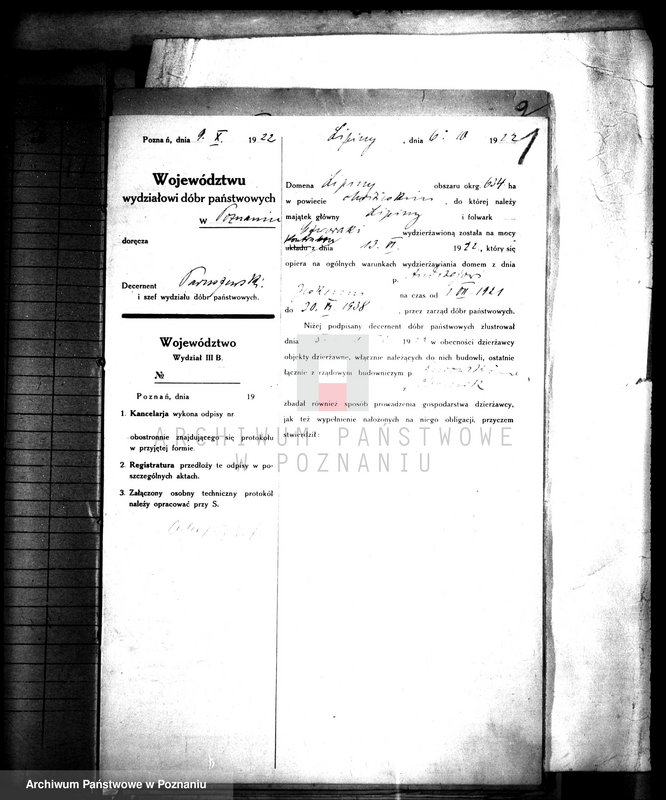 2
1
Poznań, dnia 9. X. 1922
Województwu
wydziałowi dóbr państwowych
w Poznaniu
doręcza
Decernent
i szef wydziału dóbr państwowych.
Województwo
Wydział III B.
№
Poznań, dnia 19
1. Kancelarja wykona odpisy nr.
obostronnie znajdującego się protokołu
w przyjętej formie.
2. Registratura przedłoży te odpisy w po-
szczególnych aktach.
3. Załączony osobny techniczny protokół
należy opracować przy S.
Lipiny, dnia 6. 10 1922
Domena Lipiny obszaru okrg. 634 ha
w powiecie , do której należy
majątek główny Lipiny i folwark
wydzierżawioną została na mocy
układu z dnia 13. VI. 1922, który się
opiera na ogólnych warunkach wydzierżawiania domem z dnia
p.
na czas od 1 VII 1921
do 30. VI 1938, przez zarząd dóbr państwowych.
Niżej podpisany decernent dóbr państwowych zlustrował
dnia w obecności dzierżawcy
objekty dzierżawne, włącznie należących do nich budowli, ostatnie
łącznie z rządowym budowniczym p
zbadał również sposób prowadzenia gospodarstwa dzierżawcy,
jak też wypełnienie nałożonych na niego obligacji, przyczem
stwierdził:
ARCHIWUM PAŃSTWOWE
W POZNANIU
Archiwum Państwowe w Poznaniu